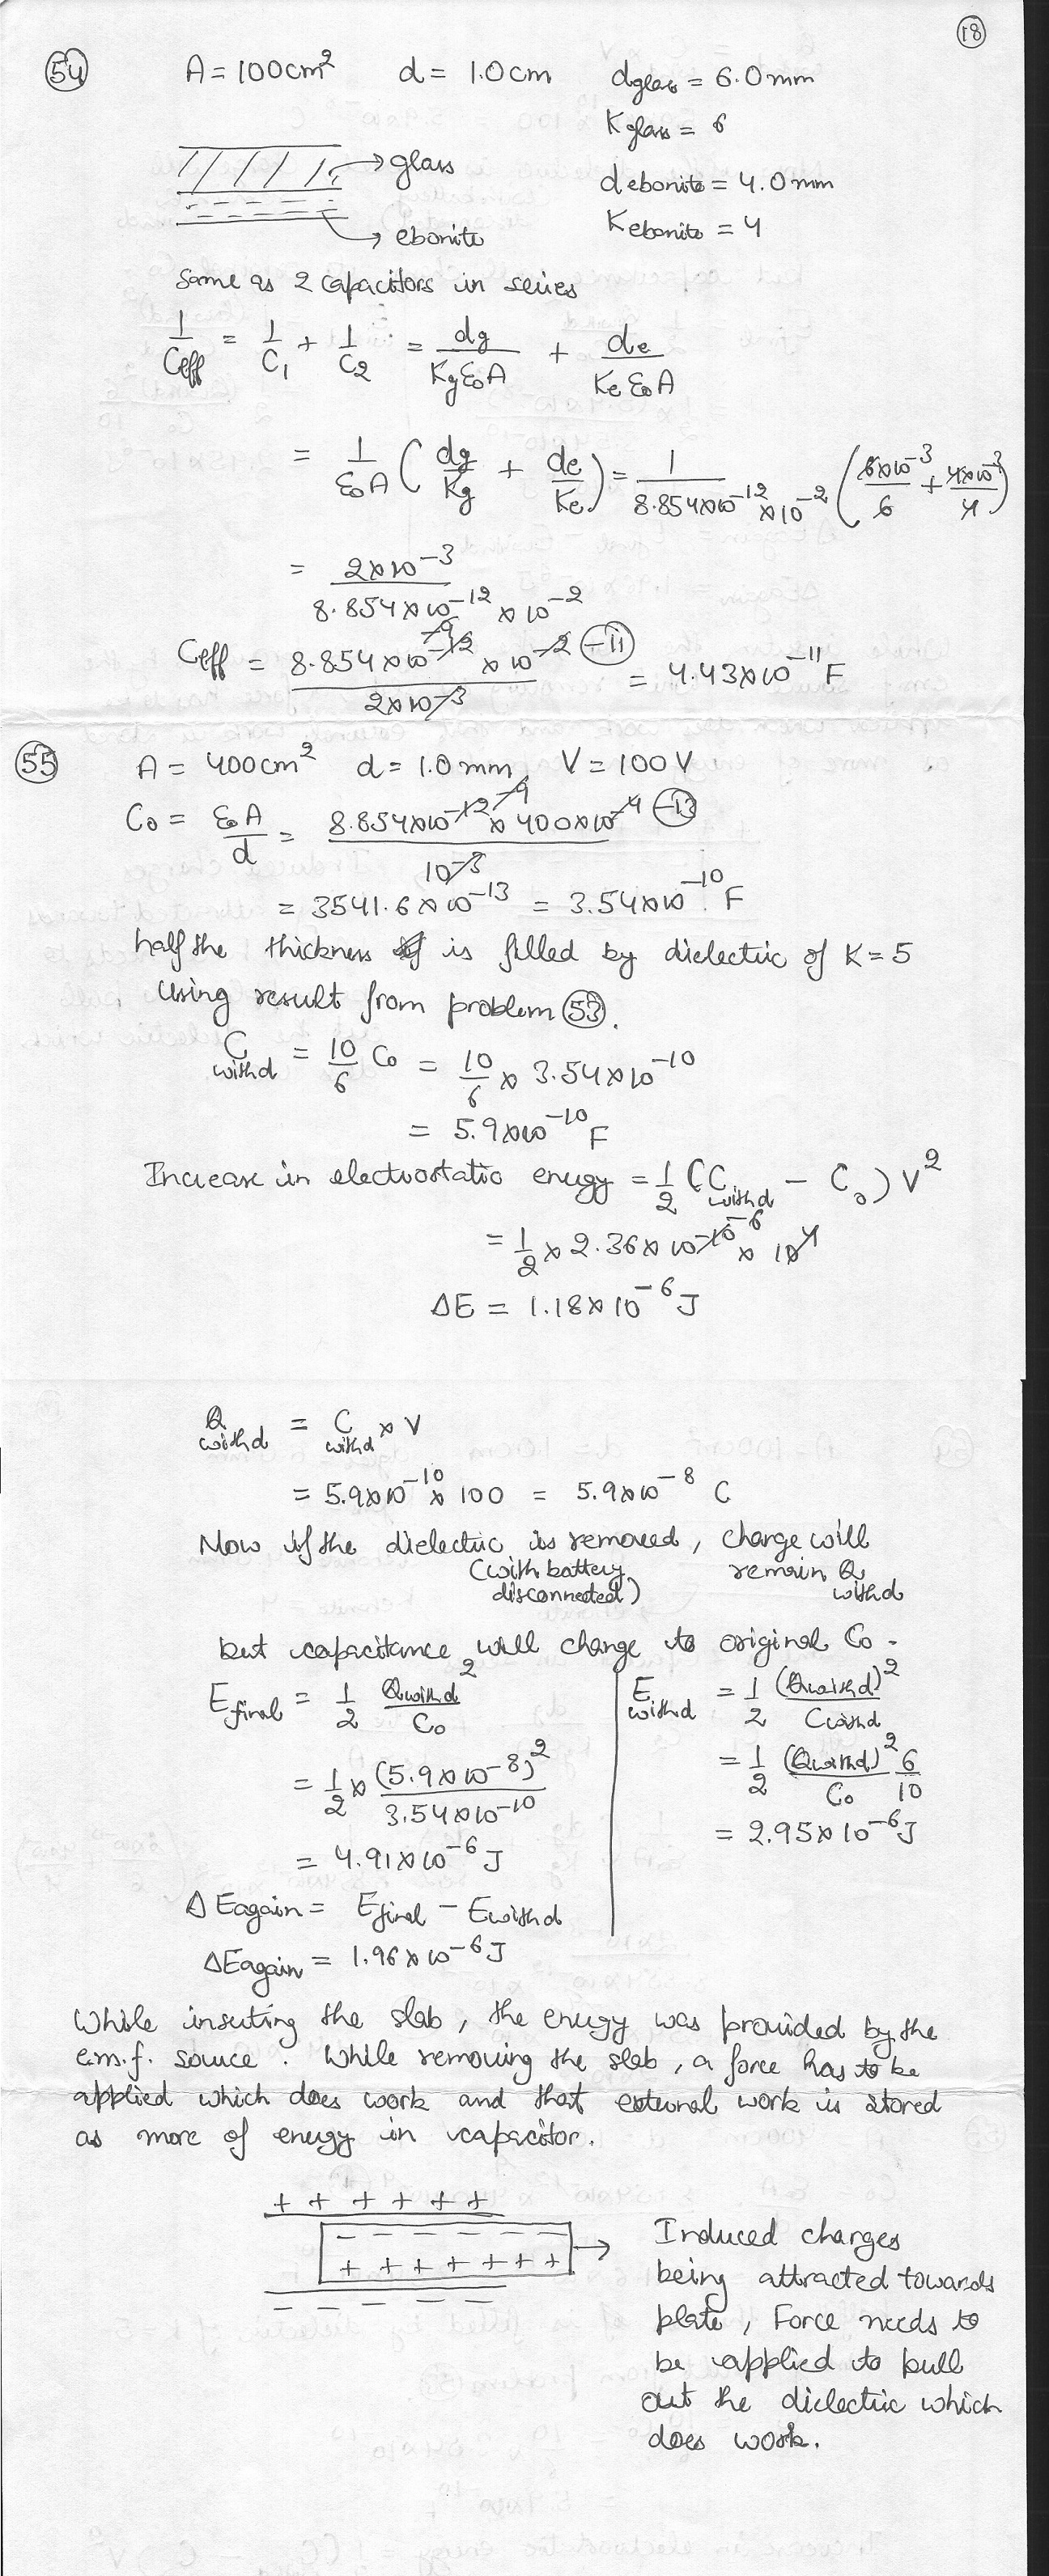 18
54 A = 100cm² d = 1.0cm dglass = 6.0mm
Kglass = 6
glass
debonite = 4.0mm
Kebonite = 4
ebonite
Same as 2 capacitors in series
1/Ceff = 1/C₁ + 1/C₂ = dg/(Kgε₀A) + de/(Keε₀A)
= 1/(ε₀A) (dg/Kg + de/Ke) = 1/(8.854×10⁻¹²×10⁻²) (6×10⁻³/6 + 4×10⁻³/4)
= 2×10⁻³/(8.854×10⁻¹² × 10⁻²)
Ceff = 8.854×10⁻¹² × 10⁻²/(2×10⁻³) -9 -11 = 4.43×10⁻¹¹F
55 A = 400cm² d = 1.0mm, V = 100V
C₀ = ε₀A/d = 8.854×10⁻¹² × 400×10⁻⁴/10⁻³ -9 -13
= 3541.6×10⁻¹³ = 3.54×10⁻¹⁰ F
half the thickness is filled by dielectric of K = 5
Using result from problem 53.
Cwithd = 10/6 C₀ = 10/6 × 3.54×10⁻¹⁰
= 5.9×10⁻¹⁰F
Increase in electrostatic energy = 1/2 (Cwithd − C₀) V²
= 1/2 × 2.36×10⁻¹⁰ × 10⁴ -6
ΔE = 1.18×10⁻⁶J
Qwithd = Cwithd × V
= 5.9×10⁻¹⁰ × 100 = 5.9×10⁻⁸ C
Now if the dielectric is removed, charge will
(with battery disconnected) remain Qwithd
but capacitance will change to original C₀.
Efinal = 1/2 Qwithd²/C₀
Ewithd = 1/2 (Qwithd)²/Cwithd
= 1/2 × (5.9×10⁻⁸)²/3.54×10⁻¹⁰
= 1/2 (Qwithd)²/C₀ 6/10
= 4.91×10⁻⁶J
= 2.95×10⁻⁶J
ΔEagain = Efinal − Ewithd
ΔEagain = 1.96×10⁻⁶J
While inserting the slab, the energy was provided by the
e.m.f. source. While removing the slab, a force has to be
applied which does work and that external work is stored
as more of energy in capacitor.
+ + + + + +
− − − − − −
+ + + + + + +
− − − − −
Induced charges
being attracted towards
plate, Force needs to
be applied to pull
out the dielectric which
does work.